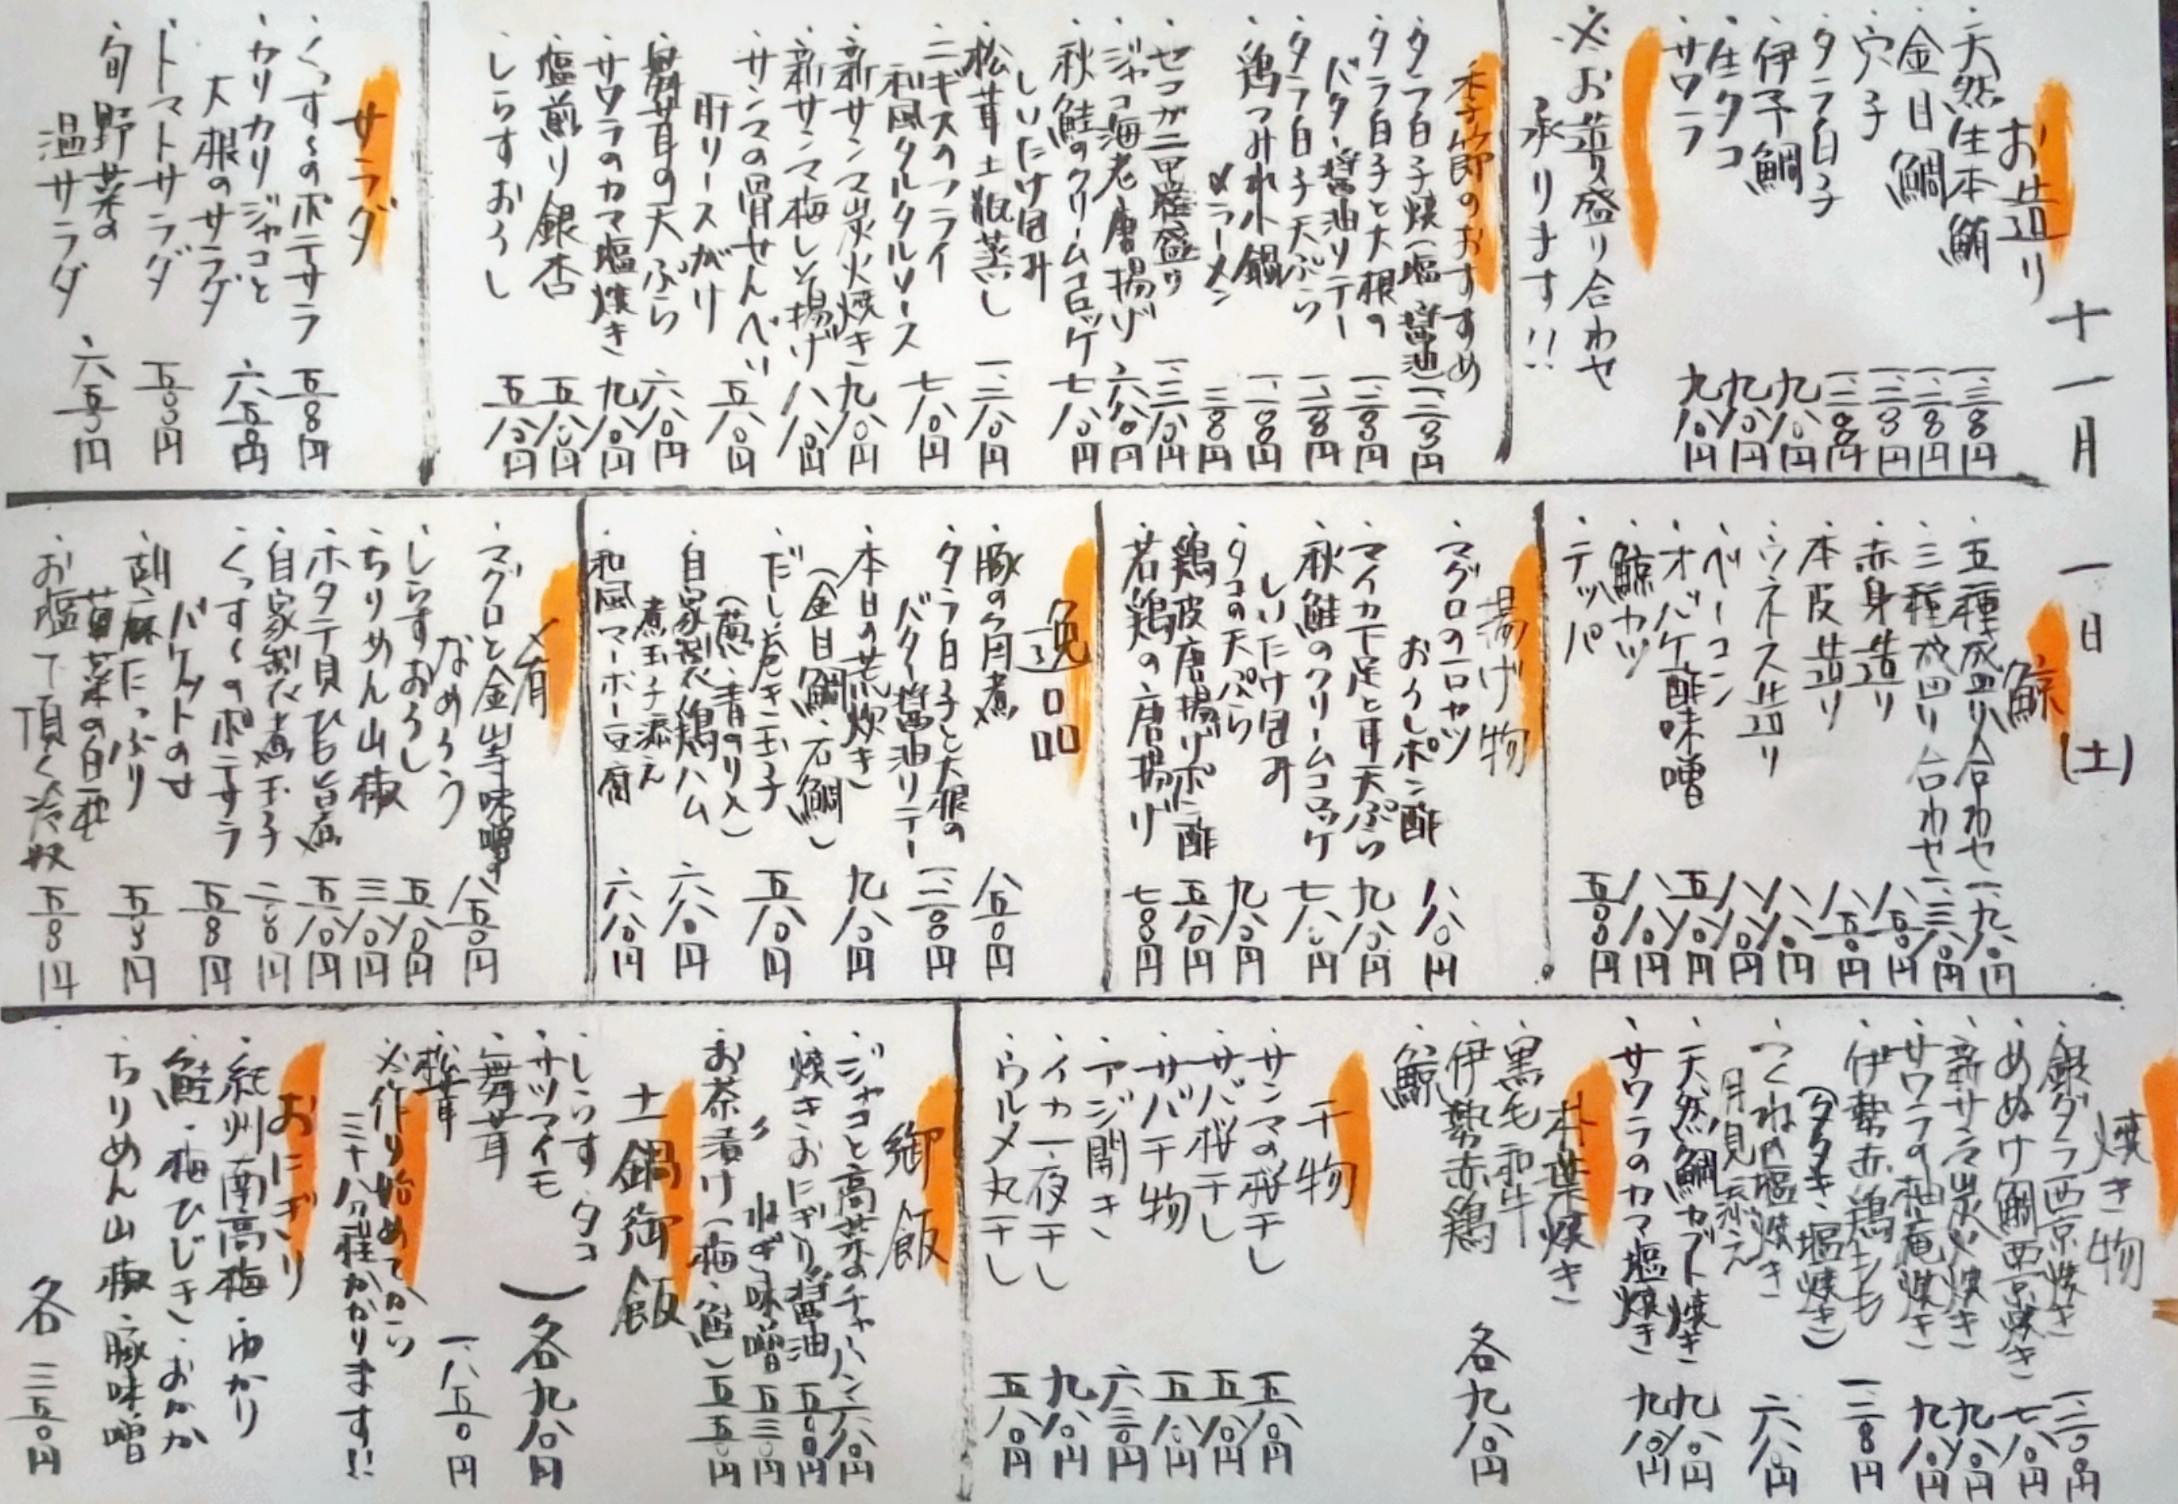 十一月一日(土)
お造り
・天然生本鮪 一、三〇〇円
・金目鯛 一、二〇〇円
・穴子 一、二〇〇円
・タラ白子 一、二〇〇円
・伊予鯛 九八〇円
・生タコ 九八〇円
・サワラ 九八〇円
※お造り盛り合わせ
承ります!!
季節のおすすめ
・タラ白子焼(塩・醤油)一、二〇〇円
・タラ白子と大根の
バター醤油ソテー 一、二〇〇円
・タラ白子天ぷら 一、二〇〇円
・鶏つみれ小鍋 一、二〇〇円
〆ラーメン 三〇〇円
・セコガニ甲羅盛り 一、三八〇円
・ジャコ海老唐揚げ 六八〇円
・秋鮭のクリームコロッケ 七八〇円
しいたけ包み
・松茸土瓶蒸し 一、三八〇円
・ニギスのフライ
和風タルタルソース 七八〇円
・新サンマ炭火焼き 九八〇円
・新サンマ梅しそ揚げ 八八〇円
・サンマの骨せんべい
肝ソースがけ 五八〇円
・舞茸の天ぷら 六八〇円
・サワラのカマ塩焼き 九八〇円
・塩煎り銀杏 五八〇円
・しらすおろし 五八〇円
サラダ
・くっす〜のポテサラ 五〇〇円
・カリカリジャコと
大根のサラダ 六五〇円
・トマトサラダ 五〇〇円
・旬野菜の
温サラダ 六五〇円
鯨
・五種盛り合わせ 一、九八〇円
・三種盛り合わせ 一、三八〇円
・赤身造り 八五〇円
・本皮造り 八五〇円
・ウネス造り 八八〇円
・ベーコン 八八〇円
・オバケ酢味噌 五八〇円
・鯨カツ 八八〇円
・テッパ 五〇〇円
揚げ物
・マグロの一口カツ
おろしポン酢 八八〇円
・マイカ下足と耳天ぷら 九八〇円
・秋鮭のクリームコロッケ
しいたけ包み 七八〇円
・タコの天ぷら 九八〇円
・鶏皮唐揚げポン酢 五八〇円
・若鶏の唐揚げ 七〇〇円
逸品
・豚の角煮 八五〇円
・タラ白子と大根の
バター醤油ソテー 一、二〇〇円
・本日の荒炊き
(金目鯛・石鯛) 九八〇円
・だし巻き玉子
(葱・青のり〆) 五八〇円
・自家製鶏ハム
煮玉子添え 六八〇円
・和風マーボー豆腐 六八〇円
〆肴
・マグロと金山寺味噌
なめろう 八五〇円
・しらすおろし 五八〇円
・ちりめん山椒 三八〇円
・ホタテ貝ひも旨煮 五八〇円
・自家製煮玉子 二八〇円
・くっす〜のポテサラ
バケットのせ 五〇〇円
・胡麻たっぷり
青菜の白和 五〇〇円
・お塩で頂く冷奴 五〇〇円
焼き物
・銀ダラ西京焼き 一、二〇〇円
・めぬけ鯛西京焼き 七八〇円
・新サンマ炭火焼き 九八〇円
・サワラの柚庵焼き 九八〇円
・伊勢赤鶏もも
(タタキ・塩焼き) 一、二〇〇円
・つくねの塩焼き
月見添え 六八〇円
・天然鯛カブト焼き 九八〇円
・サワラのカマ塩焼き 九八〇円
朴葉焼き
・黒毛和牛
・伊勢赤鶏
・鯨
各九八〇円
干物
・サンマの桜干し 五八〇円
・サバ桜干し 五八〇円
・サバ干物 五八〇円
・アジ開き 六三〇円
・イカ一夜干し 九八〇円
・ウルメ丸干し 五八〇円
御飯
・ジャコと高菜のチャーハン 六八〇円
・焼きおにぎり 醤油 五〇〇円
〃 ねぎ味噌 五三〇円
・お茶漬け(梅・鮭)五五〇円
土鍋御飯
・しらす タコ
・サツマイモ
・舞茸
)各九八〇円
・松茸 一、八五〇円
※作り始めてから
三十分程かかります!!
おにぎり
・紀州南高梅・ゆかり
・鮭・梅ひじき・おかか
・ちりめん山椒・豚味噌
各三五〇円